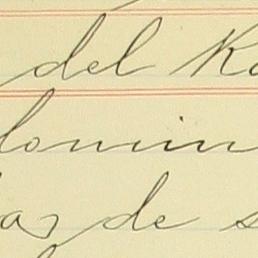 del Ka
lomin
as de s